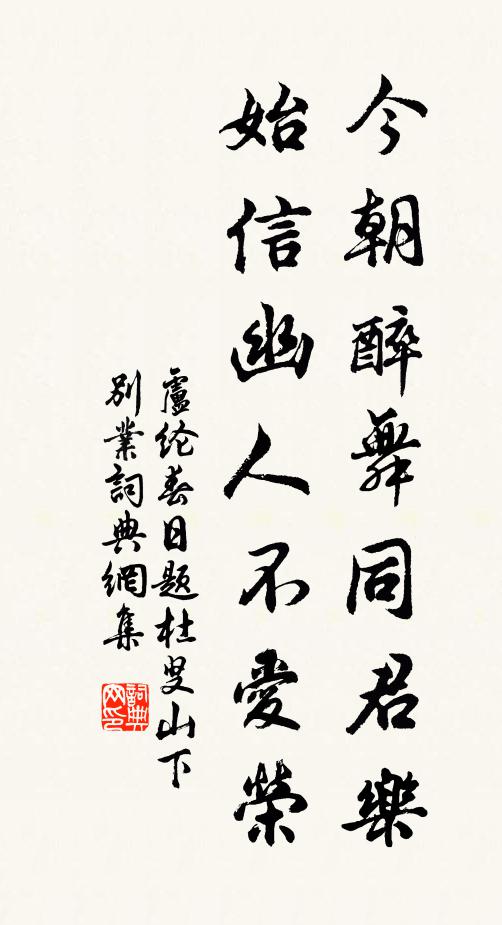 今朝醉舞同君樂
始信幽人不愛榮
盧纶春日題杜叟山下
別業詞典網集
詞典
网印